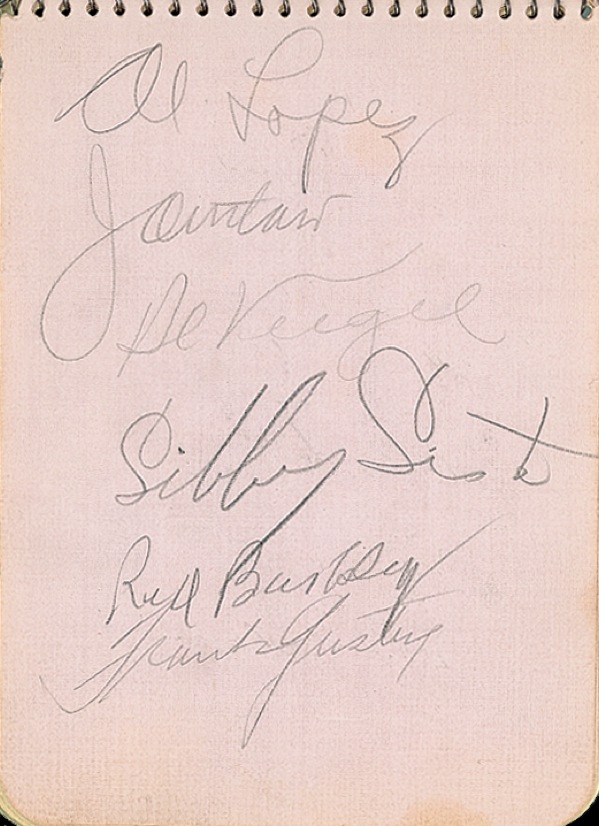 Al Lopez
J Outlaw
Al Veigel
Sibby Sisti
Red Barkley
Frank Gustine